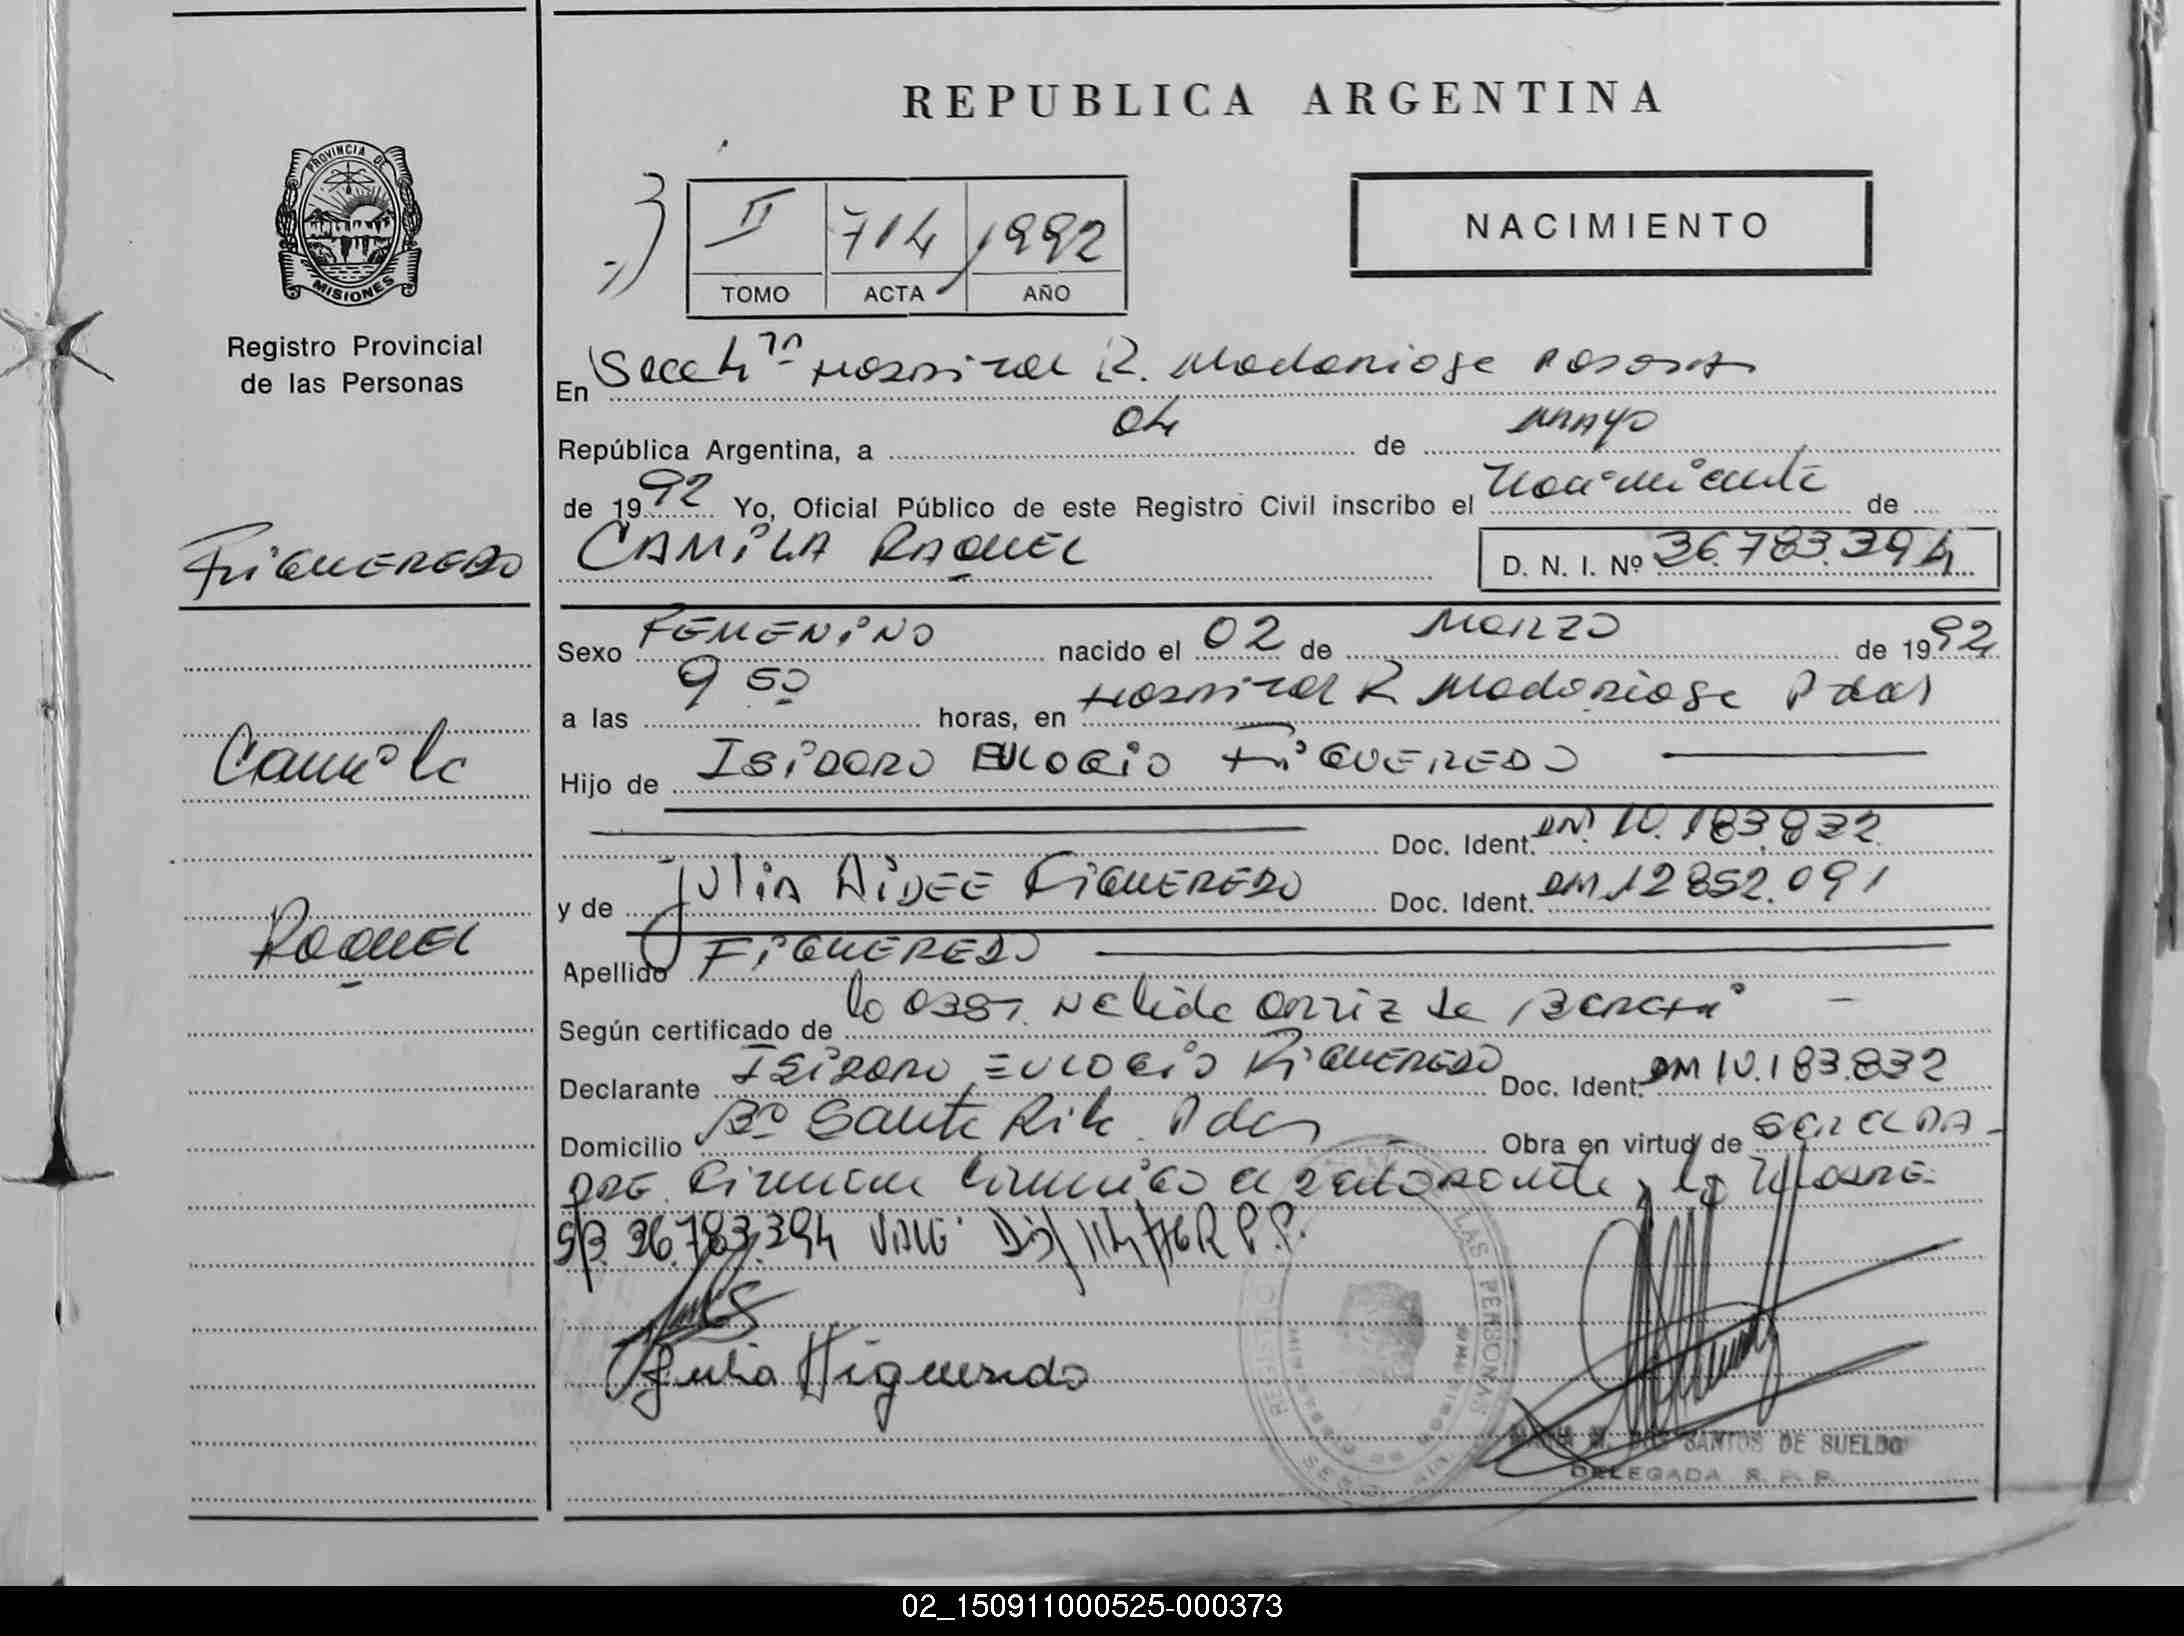 REPUBLICA ARGENTINA
PROVINCIA DE
MISIONES
Registro Provincial
de las Personas
II 714 1992
TOMO ACTA AÑO
NACIMIENTO
En Secc 4ta Hospital R. Madariaga Posadas
República Argentina, a 04 de mayo
de 1992 Yo, Oficial Público de este Registro Civil inscribo el Nacimiento de
FiGUEREDO
CAMiLA RAQUEL
D. N. I. Nº 36.783.394
Sexo FEMENiNO nacido el 02 de Marzo de 1992
a las 9 50 horas, en Hospital R Madariaga Pdas
Camila
Hijo de ISiDORO EULOGiO FiGUEREDO
Doc. Ident. DNI 10.183.832
y de Julia AiDEE FiGUEREDO Doc. Ident. DNI 12852.091
Raquel
Apellido FiGUEREDO
Según certificado de la obst. Nelida Ortiz de
Declarante ISiDORO EULOGiO FiGUEREDO Doc. Ident. DNI 10.183.832
Domicilio Bº Santa Rita Pdas Obra en virtud de
S/B. 36.783.394 VALE
Julia Figueredo
LAS PERSONAS
MISIONES
SANTOS DE SUELDO
DELEGADA R. P. P.
02_150911000525-000373